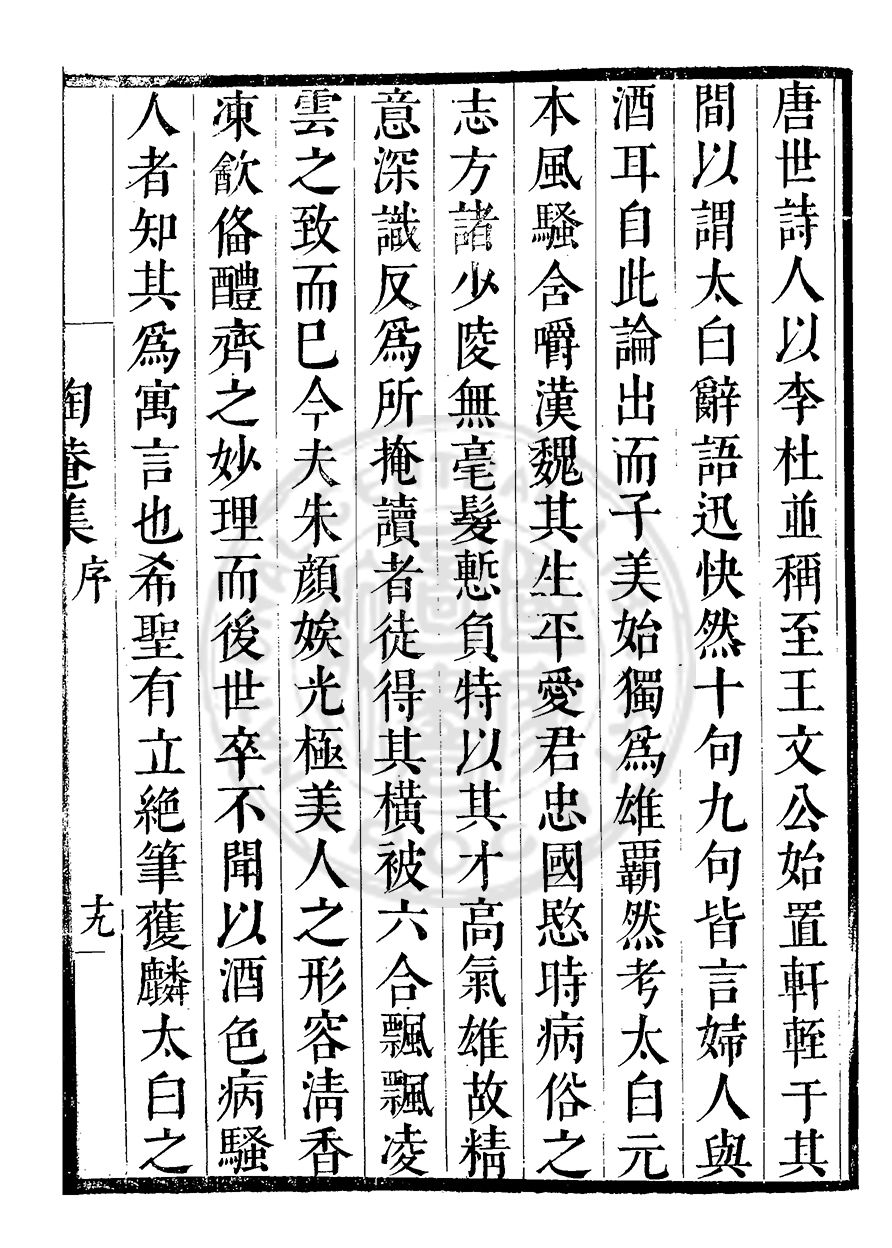 唐世詩人以李杜並稱至王文公始置軒輊于其
間以謂太白辭語迅快然十句九句皆言婦人與
酒耳自此論出而子美始獨爲雄霸然考太白元
本風騷含嚼漢魏其生平愛君忠國愍時病俗之
志方諸少陵無毫髮慙負特以其才高氣雄故精
意深識反爲所掩讀者徒得其橫被六合飄飄凌
雲之致而已今夫朱顏娭光極美人之形容淸香
凍飮俻醴齊之妙理而後世卒不聞以酒色病騷
人者知其爲寓言也希聖有立絶筆獲麟太白之
陶菴集 序 十九